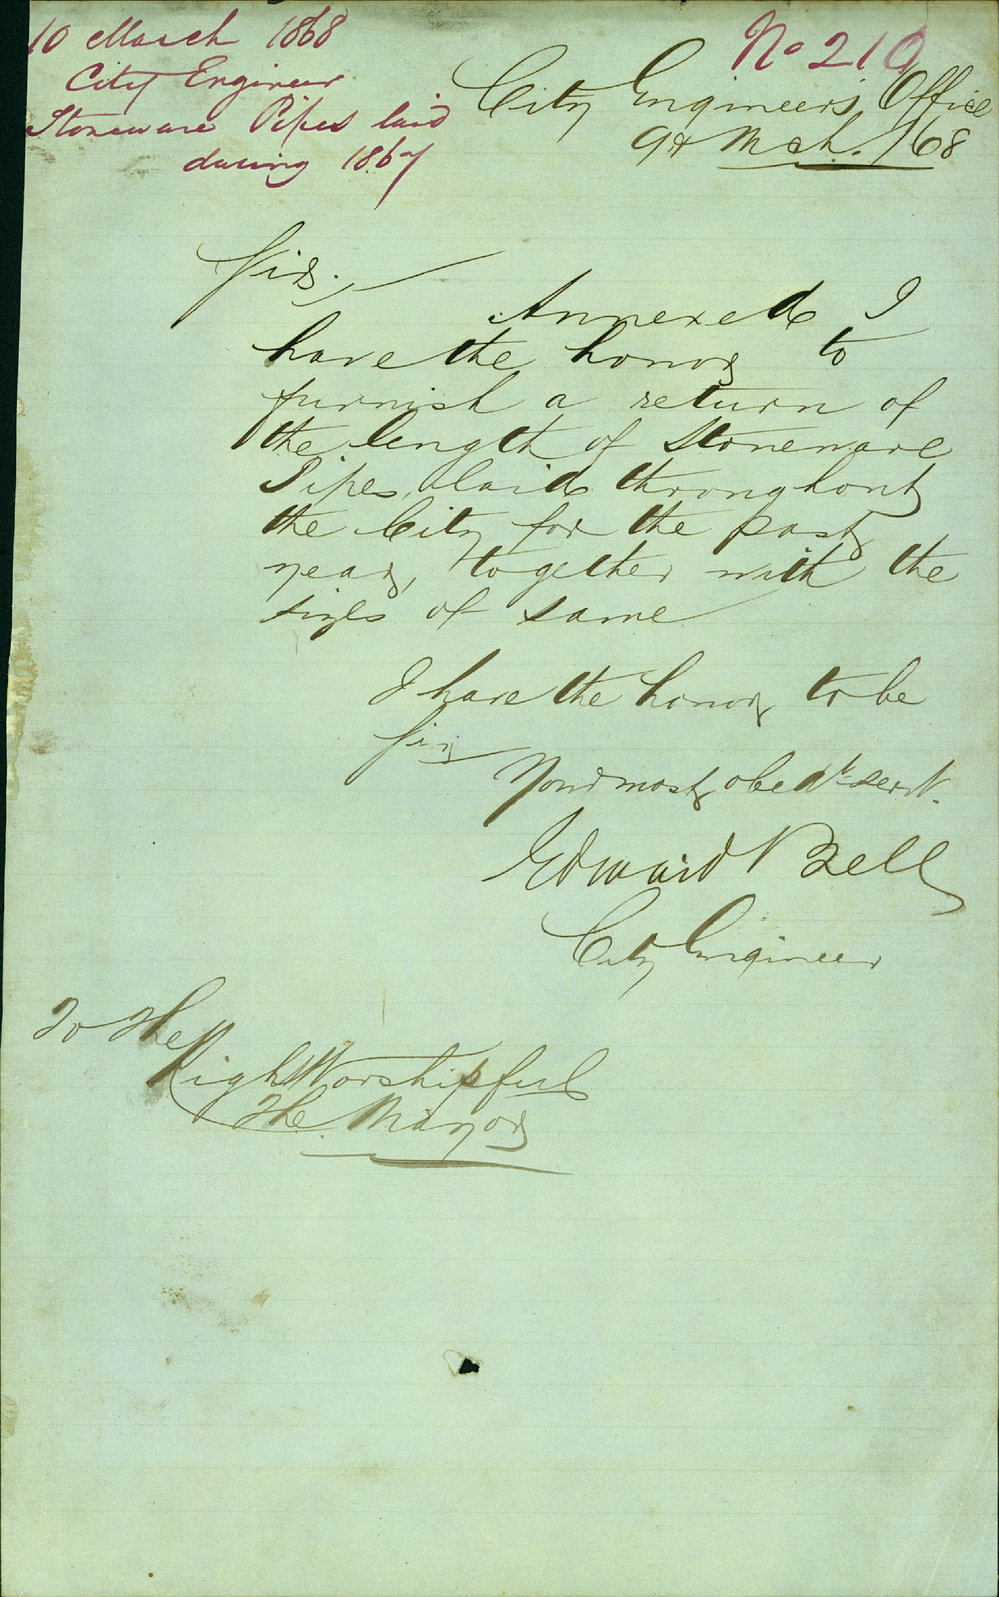 10 March 1868
City Engineer
Stoneware Pipes laid
during 1867
No 210
City Engineers Office
9th Mch. /68
Sir,
Annexed I
have the honor to
furnish a return of
the length of Stoneware
Pipes, laid throughout
the City for the past
year, together with the
sizes of same
I have the honor to be
Sir
Your most obedt servt.
Edward Bell
City Engineer
To The
Right Worshipful
The Mayor